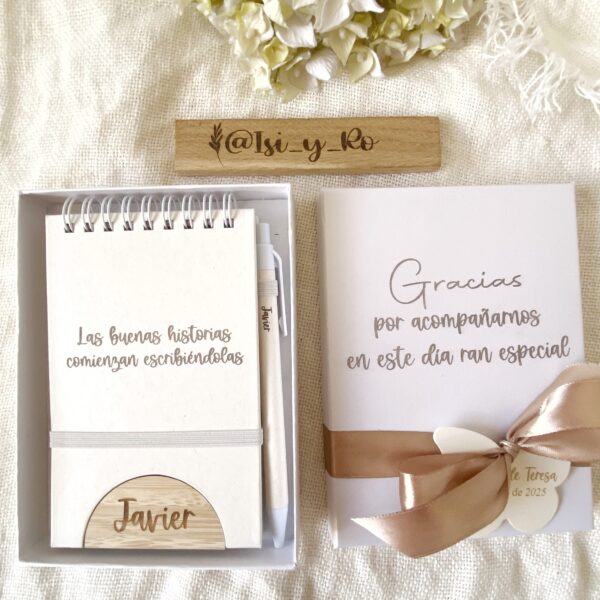 @Isi_y_Ro
Las buenas historias
comienzan escribiéndolas
Javier
Javier
Gracias
por acompañarnos
en este día ran especial
de Teresa
de 2025